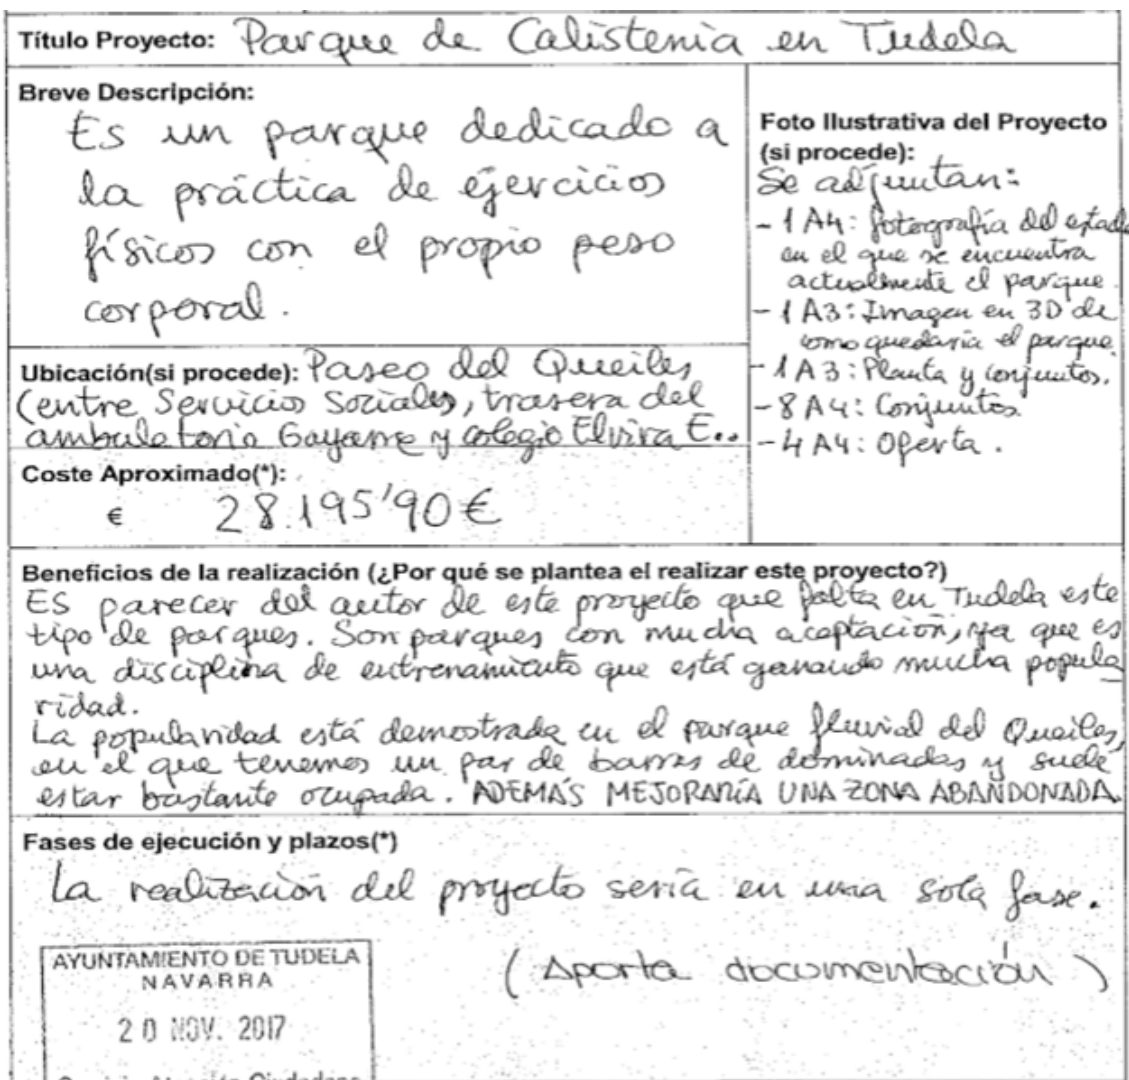 Título Proyecto: Parque de Calistenia en Tudela
Breve Descripción:
Es un parque dedicado a
la práctica de ejercicios
físicos con el propio peso
corporal.
Foto Ilustrativa del Proyecto
(si procede):
Se adjuntan:
- 1 A4: fotografía del estado
en el que se encuentra
actualmente el parque.
- 1 A3: Imagen en 3D de
como quedaría el parque.
- 1 A3: Planta y conjuntos.
- 8 A4: Conjuntos.
- 4 A4: Oferta.
Ubicación(si procede): Paseo del Queiles
(entre Servicios Sociales, trasera del
ambulatorio Gayarre y colegio Elvira E..
Coste Aproximado(*):
€ 28.195'90 €
Beneficios de la realización (¿Por qué se plantea el realizar este proyecto?)
Es parecer del autor de este proyecto que falta en Tudela este
tipo de parques. Son parques con mucha aceptación, ya que es
una disciplina de entrenamiento que está ganando mucha popula
ridad.
La popularidad está demostrada en el parque fluvial del Queiles,
en el que tenemos un par de barras de dominadas y suele
estar bastante ocupada. ADEMÁS MEJORARÍA UNA ZONA ABANDONADA.
Fases de ejecución y plazos(*)
La realización del proyecto sería en una sola fase.
(Aporta documentación)
AYUNTAMIENTO DE TUDELA
NAVARRA
20 NOV. 2017
Servicio Atención Ciudadana